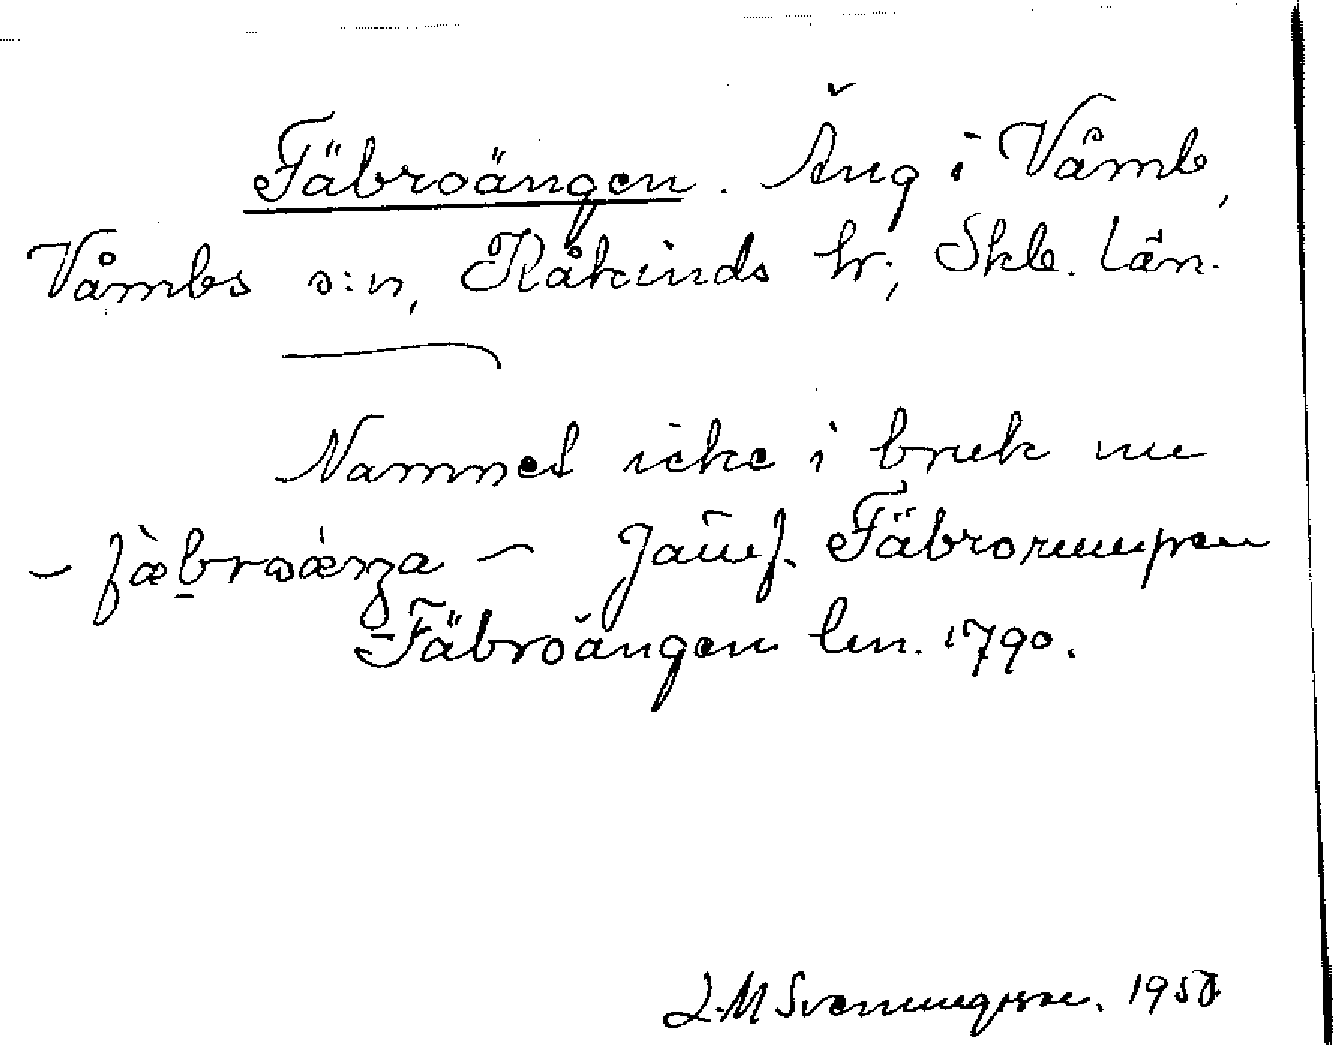 Fäbroängen. Äng i Våmb,
Våmbs s:n, Kåkinds hr, Skb. län.
Namnet icke i bruk nu
– fàbrωǽnga – Jämf. Fäbrorumpan
Fäbroängen lm. 1790.
L.M Svenungsson. 195